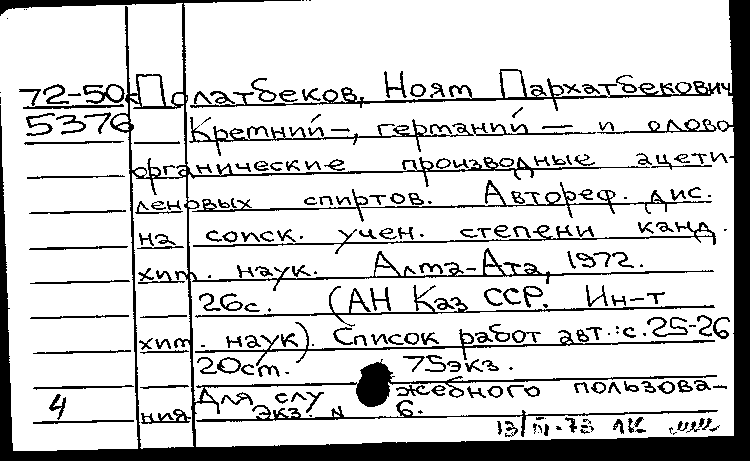 72-50к Полатбеков, Ноят Пархатбекович
5376 Кремний-, германий- и олово-
органические производные ацети-
леновых спиртов. Автореф. дис.
на соиск. учен. степени канд.
хим. наук. Алма-Ата, 1972.
26с. (АН Каз ССР. Ин-т
хим. наук). Список работ авт.: с. 25-26
20ст. 75экз.
Для служебного пользова-
4 ния экз. N 6.
13/III-73 ЛК